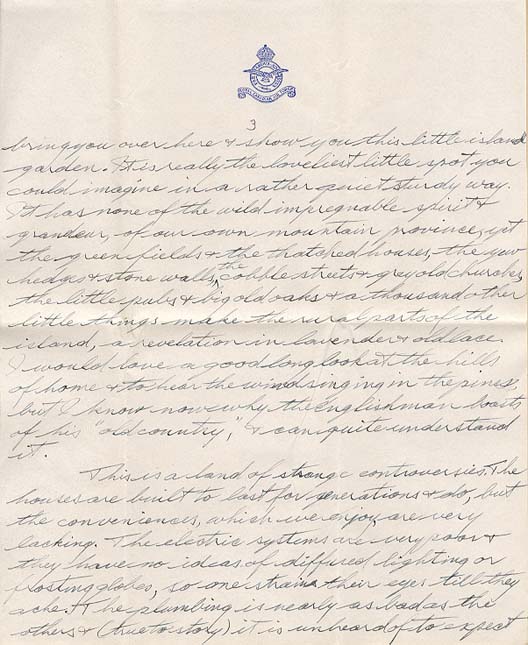 ROYAL CANADIAN AIR FORCE
3
bring you over here & show you this little island
garden. It is really the loveliest little spot you
could imagine in a rather quiet sturdy way.
It has none of the wild impregnable spirit &
grandeur, of our own mountain province, yet
the green fields & the thatched houses, the yew
hedges & stone walls, the cobble streets & grey old churches,
the little pubs & big old oaks & a thousand other
little things make the rural parts of the
island, a revelation in lavender & old lace.
I would love a good long look at the hills
of home & to hear the wind singing in the pines,
but I know now why the englishman boasts
of his "old country," & can quite understand
it.
This is a land of strange controversies. The
houses are built to last for generations & do, but
the conveniences, which we enjoy, are very
lacking. The electric systems are very poor &
they have no ideas of diffused lighting or
frosting globes, so one strains their eyes till they
ache. The plumbing is nearly as bad as the
others & (true to story) it is unheard of to expect